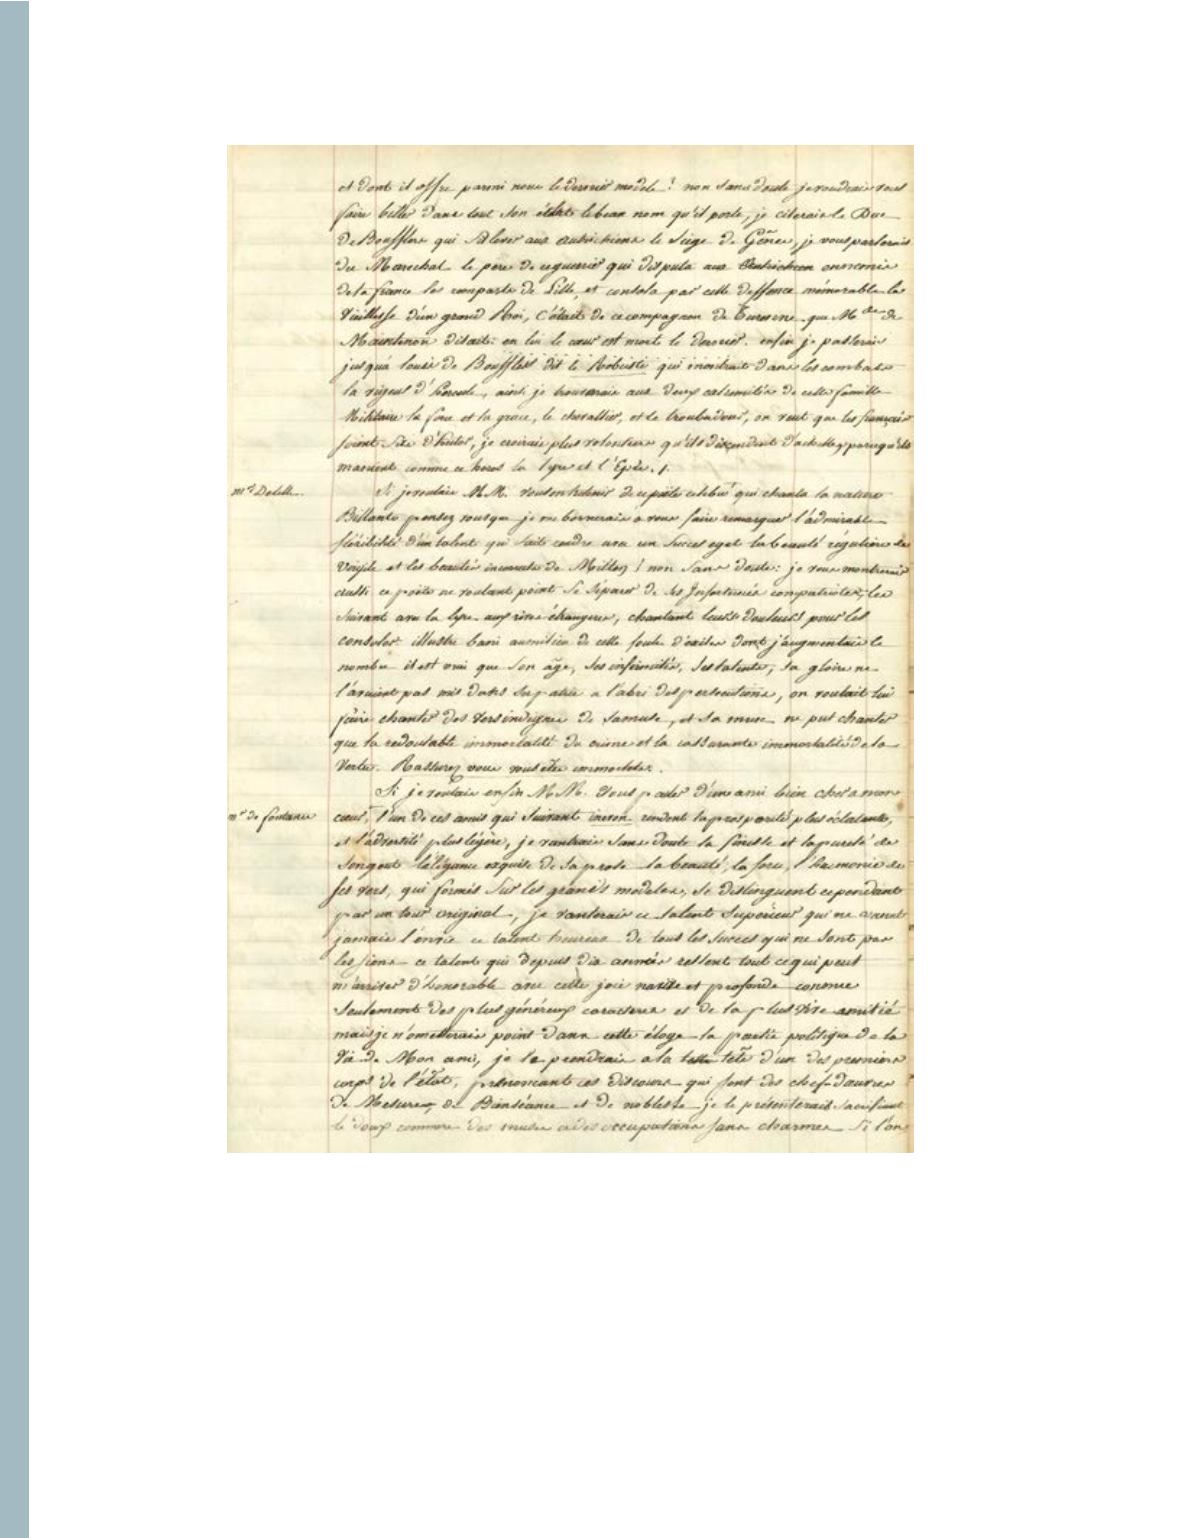 et dont il offre parmi nous le dernier modele? non sans doute je voudrais vous
faire briller dans tout son éclat le beau nom qu'il porte, je citerais le Duc
de Boufflers qui fit lever aux autrichiens le Siege de Gênes, je vous parlerais
du Marechal le pere de ce guerrier qui disputa aux ennemis
de la france les remparts de Lille, et consola par cette deffence mémorable la
vieillesse d'un grand Roi, c'était de ce compagnon de Turenne que Mde de
Maintenon disait: en lui le cœur est mort le dernier. enfin je passerais
jusqu'à louis de Boufflers dit le Robuste qui montrait dans les combats
la vigeur d'hercule, ainsi je trouverais aux deux extremités de cette famille
Militaire la force et la grace, le chevallier, et le troubadour, on veut que les français
soient fils d'hector, je croirais plus volontiers qu'ils descendent d'achille, parcequ'ils
manient comme ce heros la lyre et l'Epée.
mr Delille. Si je voulais MM. vous entretenir de ce poëte celebre qui chanta la nature
Brillante pensez vous que je me bornerais a vous faire remarquer l'admirable
fléxibilité d'un talent qui sait rendre avec un succes egal la beauté régulière de
Virgile et les beautés incorrectes de Milton? non Sans doute: je vous montrerais
aussi ce poëte ne voulant point se séparer de ses Infortunés compatriotes, les
suivant avec la lyre aux rives étrangeres, chantant leurs douleurs pour les
consoler illustre bani au milieu de cette foule d'exilés dont j'augmentais le
nombre il est vrai que son âge, ses infirmités, ses talents, sa gloire ne
l'avaient pas mis dans sa patrie a l'abri des persecutions, on voulait lui
faire chanter des vers indignes de sa muse, et sa muse ne put chanter
que la redoutable immortalité du crime et la rassurante immortalité de la
Vertu. Rassurez vous vous êtes immortels.
Si je voulais enfin MM. vous parler d'un ami bien cher a mon
mr de fontanes cœur, l'un de ces amis qui suivant ciceron rendent la prosperité plus éclatante,
et l'adversité plus légère, je vanterais sans doute la finesse et la pureté de
son gout l'élégance exquise de sa prose la beauté, la force, l'harmonie de
ses vers, qui formés sur les grands modeles, se distinguent cependant
par un tour original, je vanterais ce talent superieur qui ne connut
jamais l'envie ce talent heureux de tous les succes qui ne sont pas
les siens ce talent qui depuis dix années ressent tout ce qui peut
m'arriver d'honorable avec cette joie naïve et profonde connue
seulement des plus généreux caracteres et de la plus vive amitié
mais je n'omettrais point dans cette éloge la partie politique de la
vie de Mon ami, je le peindrais a la tête d'un des premiers
corps de l'état, prononcant ces discours qui sont des chef-d'œuvres
de Mesure, de Bienséance et de noblesse je le présenterais sacrifiant
le doux commerce des muses a des occupations sans charmes Si l'on